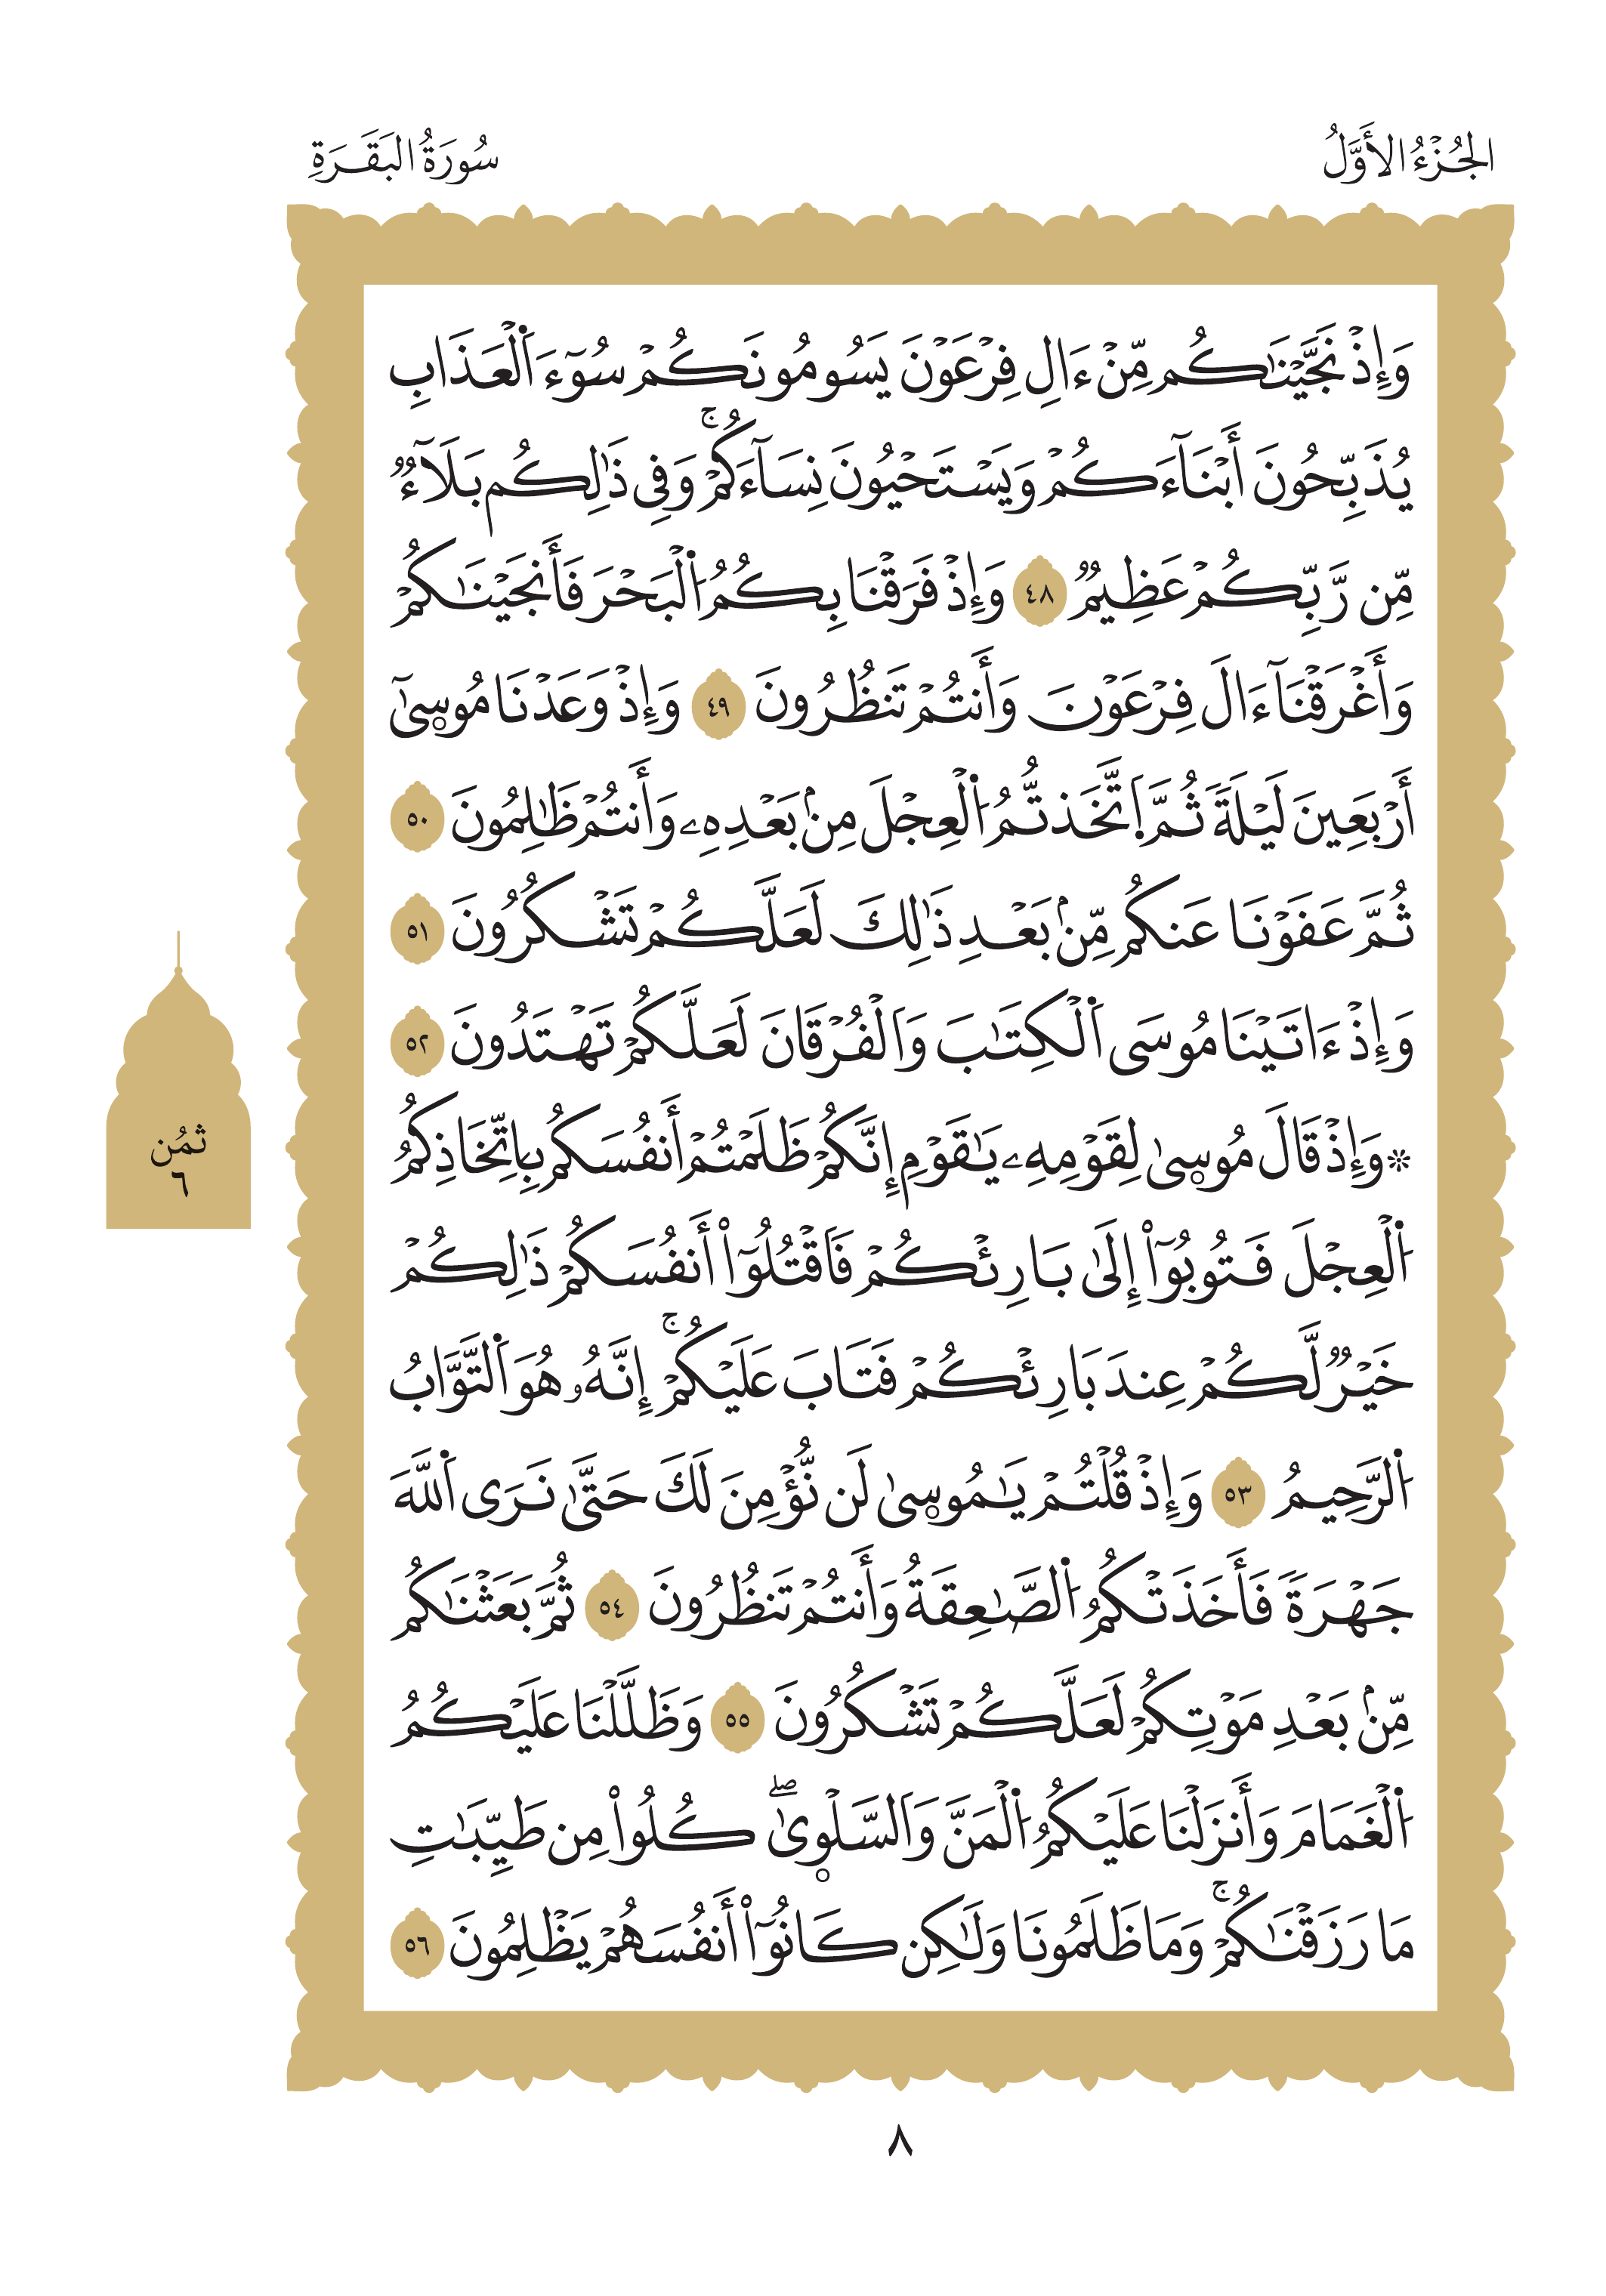 الجُزْءُ الأَوَّلُ
سُورَةُ البَقَرَةِ
وَإِذْ نَجَّيْنَٰكُم مِّنْ ءَالِ فِرْعَوْنَ يَسُومُونَكُمْ سُوٓءَ اَ۬لْعَذَابِ
يُذَبِّحُونَ أَبْنَآءَكُمْ وَيَسْتَحْيُونَ نِسَآءَكُمْۚ وَفِى ذَٰلِكُم بَلَآءٌ
مِّن رَّبِّكُمْ عَظِيمٌ ٤٨ وَإِذْ فَرَقْنَا بِكُمُ اُ۬لْبَحْرَ فَأَنجَيْنَٰكُمْ
وَأَغْرَقْنَآ ءَالَ فِرْعَوْنَ وَأَنتُمْ تَنظُرُونَ ٤٩ وَإِذْ وَعَدْنَا مُوسۭىٰٓ
أَرْبَعِينَ لَيْلَةً ثُمَّ اَ۪تَّخَذتُّمُ اُ۬لْعِجْلَ مِنۢ بَعْدِهِۦ وَأَنتُمْ ظَٰلِمُونَ ٥٠
ثُمَّ عَفَوْنَا عَنكُم مِّنۢ بَعْدِ ذَٰلِكَ لَعَلَّكُمْ تَشْكُرُونَ ٥١
وَإِذْ ءَاتَيْنَا مُوسَى اَ۬لْكِتَٰبَ وَاَلْفُرْقَانَ لَعَلَّكُمْ تَهْتَدُونَ ٥٢
۞وَإِذْ قَالَ مُوسۭىٰ لِقَوْمِهِۦ يَٰقَوْمِ إِنَّكُمْ ظَلَمْتُمْ أَنفُسَكُم بِاِتِّخَاذِكُمُ
اُ۬لْعِجْلَ فَتُوبُوٓاْ إِلَىٰ بَارِئْكُمْ فَاَقْتُلُوٓاْ أَنفُسَكُمْ ذَٰلِكُمْ
خَيْرٌ لَّكُمْ عِندَ بَارِئْكُمْ فَتَابَ عَلَيْكُمْۚ إِنَّهُۥ هُوَ اَ۬لتَّوَّابُ
اُ۬لرَّحِيمُ ٥٣ وَإِذْ قُلْتُمْ يَٰمُوسۭىٰ لَن نُّؤْمِنَ لَكَ حَتَّىٰ نَرَى اَ۬للَّهَ
جَهْرَةً فَأَخَذَتْكُمُ اُ۬لصَّٰعِقَةُ وَأَنتُمْ تَنظُرُونَ ٥٤ ثُمَّ بَعَثْنَٰكُم
مِّنۢ بَعْدِ مَوْتِكُمْ لَعَلَّكُمْ تَشْكُرُونَ ٥٥ وَظَلَّلْنَا عَلَيْكُمُ
اُ۬لْغَمَامَ وَأَنزَلْنَا عَلَيْكُمُ اُ۬لْمَنَّ وَاَلسَّلْوۭىٰۖ كُلُواْ مِن طَيِّبَٰتِ
مَا رَزَقْنَٰكُمْۚ وَمَا ظَلَمُونَا وَلَٰكِن كَانُوٓاْ أَنفُسَهُمْ يَظْلِمُونَ ٥٦
ثمُن
٦
٨